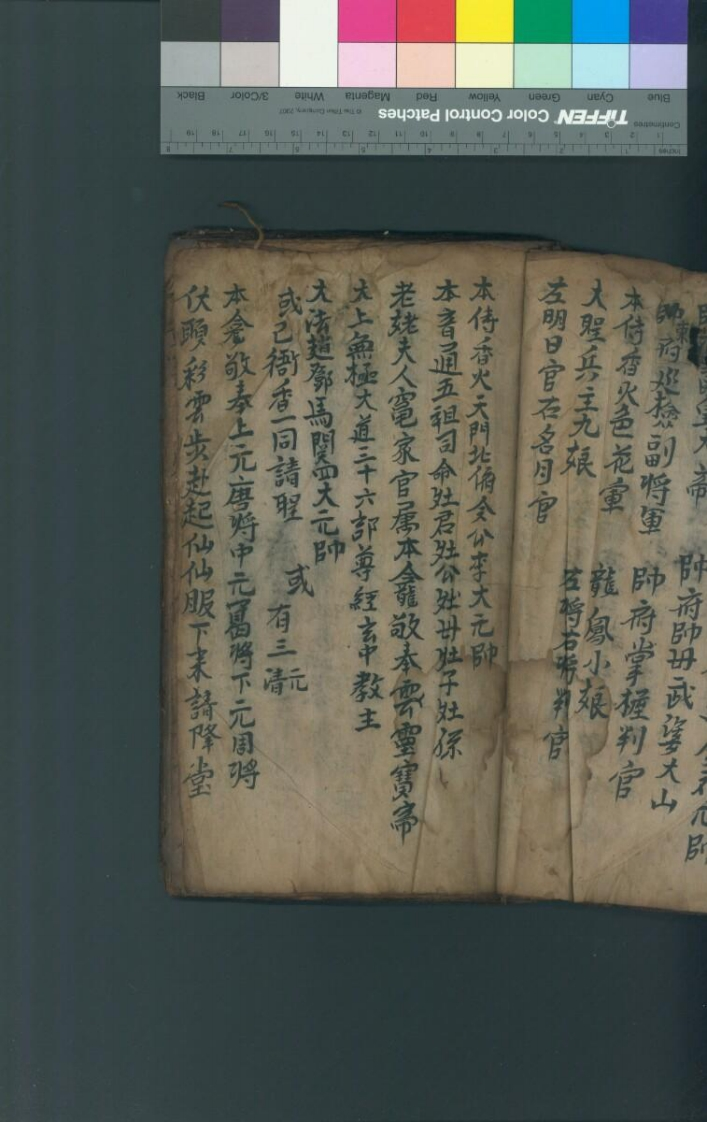 帥府巡檢副將軍
帥府帥毋武婆大山
本侍香火色花童
帥府掌權判官
大聖兵主九娘
龍鳳小娘
左明日官右名月官
左將右將判官
本侍香火天門北俯令公李大元帥
本音通五祖司命灶君灶公灶毋灶子灶孫
老姥夫人竈家官属本龕敬奉雲靈寶帝
太上無極大道三十六部尊經玄中教主
大法趙鄧馬關四大元帥
或己衙香一同請聖 或有三元三清
本龕敬奉上元唐將中元葛將下元周將
伏願彩雲步赴起仙仙服下来請降壇
Centimetres
Inches
TIFFEN Color Control Patches
© The Tiffen Company, 2007
Blue Cyan Green Yellow Red Magenta White 3/Color Black